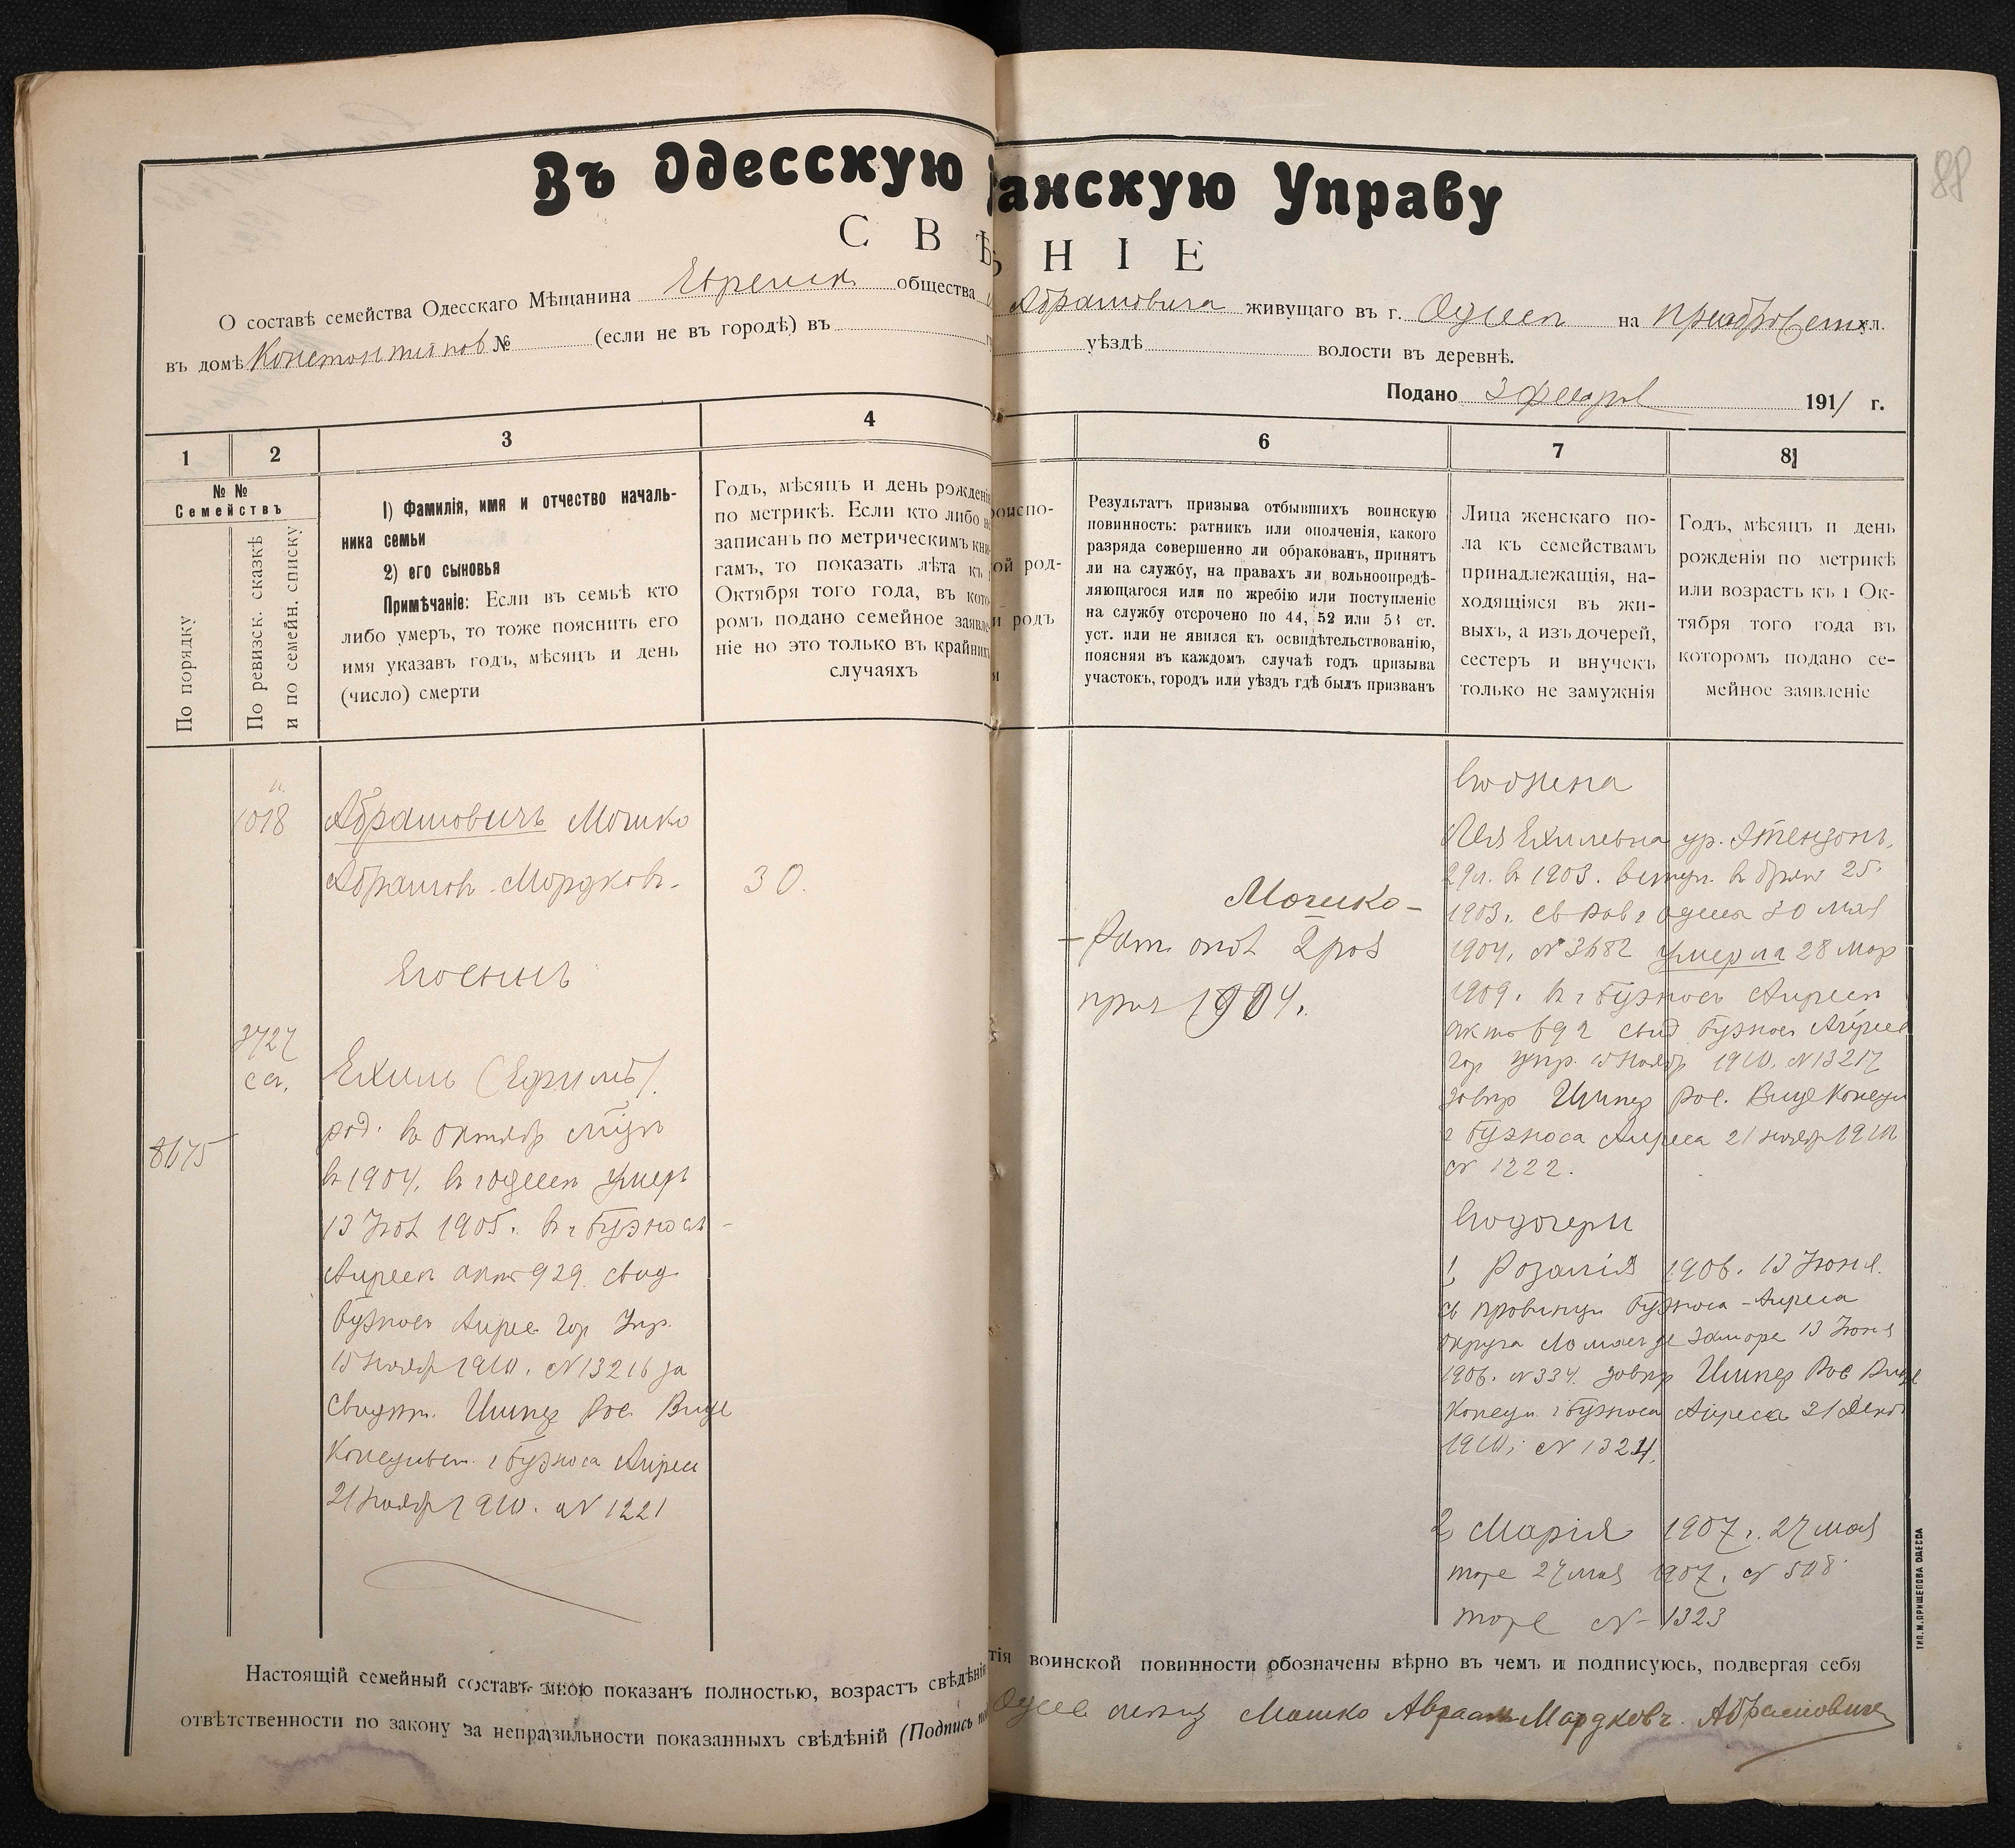 88
Въ Одесскую анскую Управу
С В Ѣ Н І Е
О составѣ семейства Одесскаго Мѣщанина Евреиск общества Абрамовича живущаго въ г. Одессѣ на ул.
въ домѣ Константинов № (если не въ городѣ) въ уѣздѣ волости въ деревнѣ.
Подано 3 феврал 1911 г.
1
2
3
4
6
7
8
№ №
Семействъ
По порядку
По ревизск. сказкѣ
и по семейн. списку
1) Фамилія, имя и отчество началь-
ника семьи
2) его сыновья
Примѣчаніе: Если въ семьѣ кто
либо умеръ, то тоже пояснить его
имя указавъ годъ, мѣсяцъ и день
(число) смерти
Годъ, мѣсяцъ и день рожденія
по метрикѣ. Если кто либо не
записанъ по метрическимъ кни-
гамъ, то показать лѣта къ 1
Октября того года, въ кото-
ромъ подано семейное заявле-
ніе но это только въ крайнихъ
случаяхъ
оиспо-
ой род-
и родъ
я
Результатъ призыва отбывшихъ воинскую
повинность: ратникъ или ополченія, какого
разряда совершенно ли обракованъ, принятъ
ли на службу, на правахъ ли вольноопредѣ-
ляющагося или по жребію или поступленіе
на службу отсрочено по 44, 52 или 53 ст.
уст. или не явился къ освидѣтельствованію,
поясняя въ каждомъ случаѣ годъ призыва
участокъ, городъ или уѣздъ гдѣ былъ призванъ
Лица женскаго по-
ла къ семействамъ
принадлежащія, на-
ходящіяся въ жи-
выхъ, а изъ дочерей,
сестеръ и внучекъ
только не замужнія
Годъ, мѣсяцъ и день
рожденія по метрикѣ
или возрастъ къ 1 Ок-
тября того года въ
которомъ подано се-
мейное заявленіе
1018
Абрамовичъ Мошко
Абрамов. Мордков.
30.
Егосынъ
3727
са.
Ехиль (Ефимъ).
род. в октябр мѣс
8675
в 1904. в г Одессѣ умеръ
13 1905. в г Буэнос-
Айресѣ акт 929. свид
Буэнос Айрес Гор Упр.
15 ноябр 1910. N 13216 за
Свидѣт. Импер Рос. Вице
Консульст. г Буэноса Айреса
21 ноябр 1910. N 1221
Мошко-
Рат. опол 2 раз
приз 1904.
Егожена
Лея Ехилевна ур.
29 л. в 1903. вступ. в брак 25.
1903. св Рав г Одесса 30 мая
1904. N 3682 умерла 28 мар
1909. в г Буэнос Айресѣ
акт 692 свид Буэнос Айрес
гор упр. 15 Ноябр 1910. N 13217
завѣр Импер Рос. Вице Консул
г Буэноса Айреса 21 ноябр 1910
N 1222.
Егодочери
1, Розалія 1906. 13 Іюня.
св провинци Буэноса-Айреса
округа Ломасъ де Замора 13 Іюня
1906. N 334. завѣр Импер Рос Вице
Консул г Буэноса Айреса 21 Декаб
1910. N 1324.
2, Марія 1907 г. 27 мая
тоже 27 мая 1907. N 508
тоже N 1323
Настоящій семейный составъ мною показанъ полностью, возрастъ свѣдѣнія тія воинской повинности обозначены вѣрно въ чемъ и подписуюсь, подвергая себя
отвѣтственности по закону за неправильности показанныхъ свѣдѣній (Подпись Мошко Авраам Мордковъ Абрамовичъ
ТИП. М. ПРИЩЕПОВА ОДЕССА